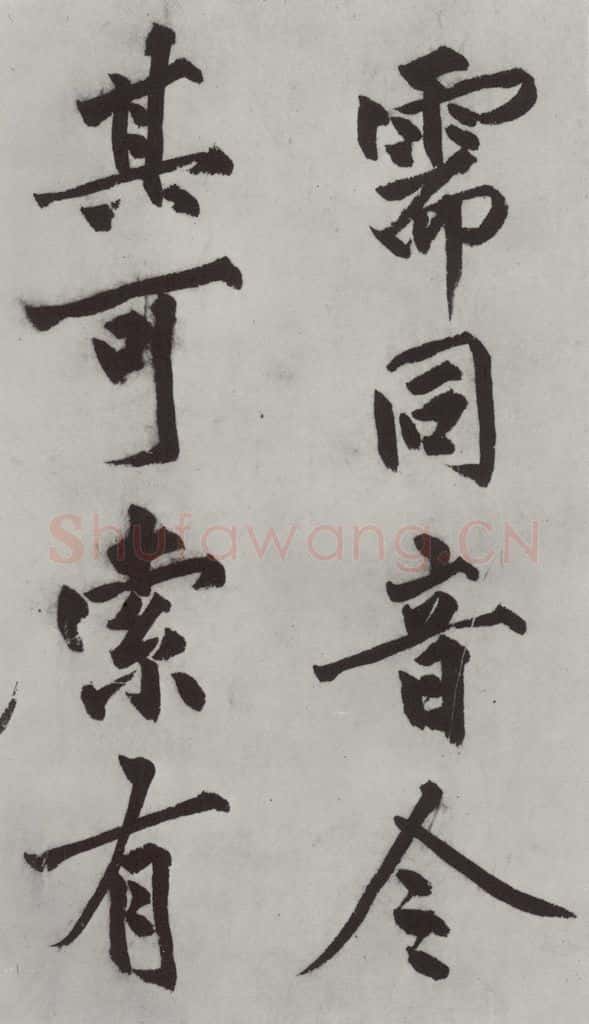 需同音令
其可索有
Shufawang.CN